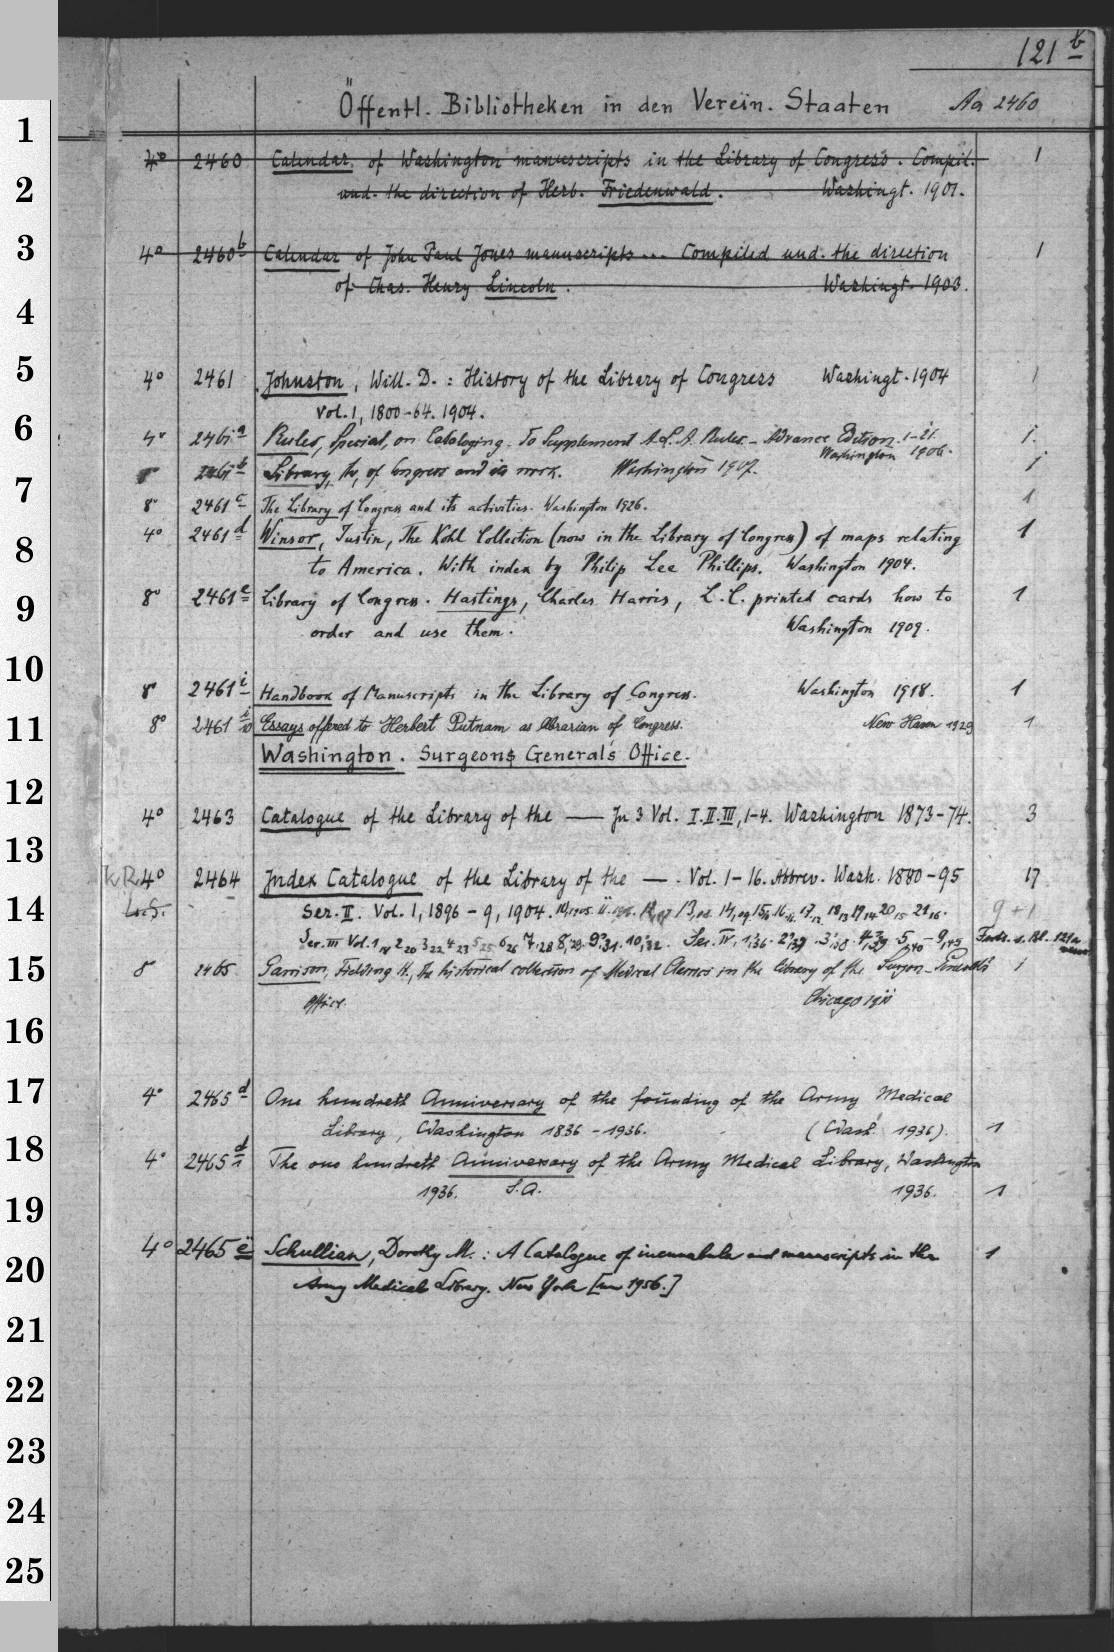 121 b
Öffentl. Bibliotheken in den Verein. Staaten Aa 2460
1
2
3
4
5
6
7
8
9
10
11
12
13
14
15
16
17
18
19
20
21
22
23
24
25
4° 2460 Calendar of Washington manuscripts in the Library of Congress. Compil. 1
und. the direction of Herb. Friedenwald. Washingt. 1901.
4° 2460b Calendar of John Paul Jones manuscripts... Compiled und. the direction 1
of Chas. Henry Lincoln. Washingt. 1903.
4° 2461 Johnston, Will. D.: History of the Library of Congress Washingt. 1904 1
Vol. 1, 1800-64. 1904.
4° 2461a Rules, Special, on Cataloging. To Supplement A.L.A. Rules - Advance Edition. 1-21. 1
Washington 1906.
2461b Library, the, of Congress and its work. Washington 1907. 1
8° 2461c The Library of Congress and its activities. Washington 1926. 1
4° 2461d Winsor, Justin, The Kohl Collection (now in the Library of Congress) of maps relating 1
to America. With index by Philip Lee Phillips. Washington 1904.
8° 2461e Library of Congress. Hastings, Charles Harris, L.C. printed cards how to 1
order and use them. Washington 1909.
8° 2461i Handbook of Manuscripts in the Library of Congress. Washington 1918. 1
8° 2461 Essays offered to Herbert Putnam as librarian of Congress. New Haven 1929 1
Washington. Surgeons General's Office.
4° 2463 Catalogue of the Library of the — In 3 Vol. I.II.III, 1-4. Washington 1873-74. 3
4° 2464 Index Catalogue of the Library of the —. Vol. 1-16. Abbrev. Wash. 1880-95 17
Ser. II. Vol. 1, 1896 - 9, 1904. 10,1905. 14,09 15,10 16,11 17,12 18,13 19,14 20,15 21,16. 9+1
Ser. III Vol. 1 2,20 3,22 4,23 5,25 6,26 7,28 8,29. 9,31. 10,32. Ser. IV, 1,36. 2,37 3,38. 4,39 5,40 - 9,45 Forts. s. Bl. 121a
8° 2465 Garrison, Fielding H., The historical collection of Medical Classics in the library of the Surgeon-General's 1
office. Chicago 1911
4° 2465d One hundreth Anniversary of the founding of the Army Medical
Library, Washington 1836 - 1936. (Wash. 1936). 1
4° 2465d1 The one hundreth Anniversary of the Army Medical Library, Washington
1936. S.A. 1936. 1
4° 2465e Schullian, Dorothy M.: A Catalogue of incunabula and manuscripts in the 1
Army Medical Library. New York [um 1956.]